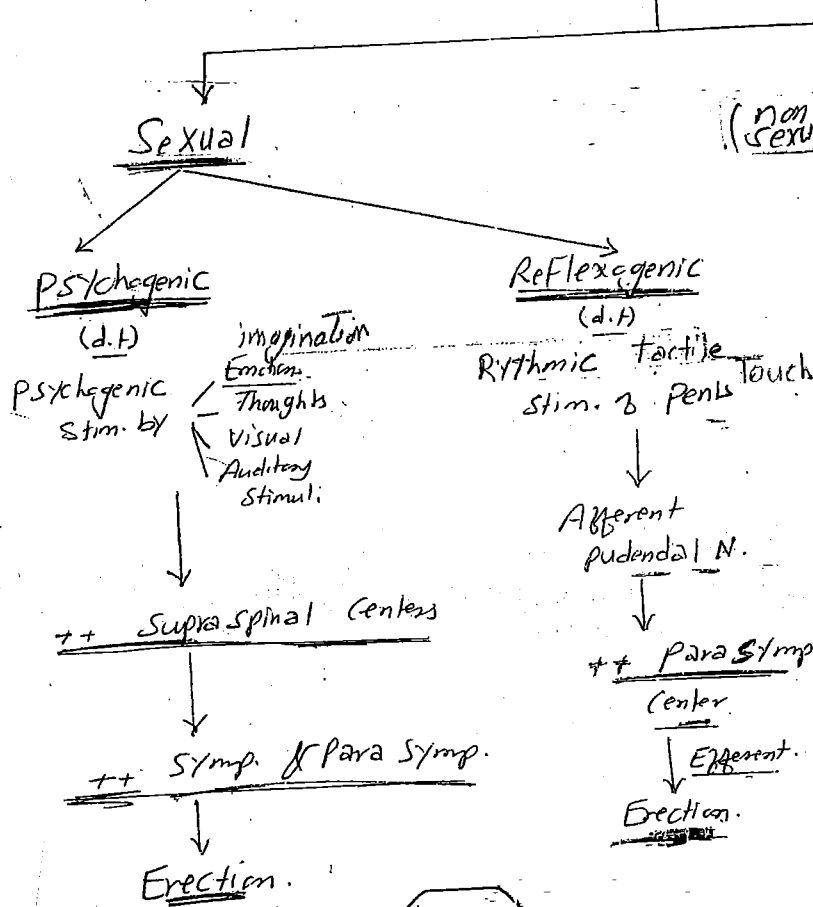 Sexual
(non
sexu
Psychogenic
(d.t)
Psychogenic
stim. by
imagination
Emotions.
Thoughts.
Visual
Auditory
Stimuli
++ Supraspinal Centers
++ Symp. & Para Symp.
Erection.
Reflexogenic
(d.t)
Rythmic tactile Touch
stim. of Penis
Afferent
pudendal N.
++ Para Symp
Center
Efferent.
Erection.